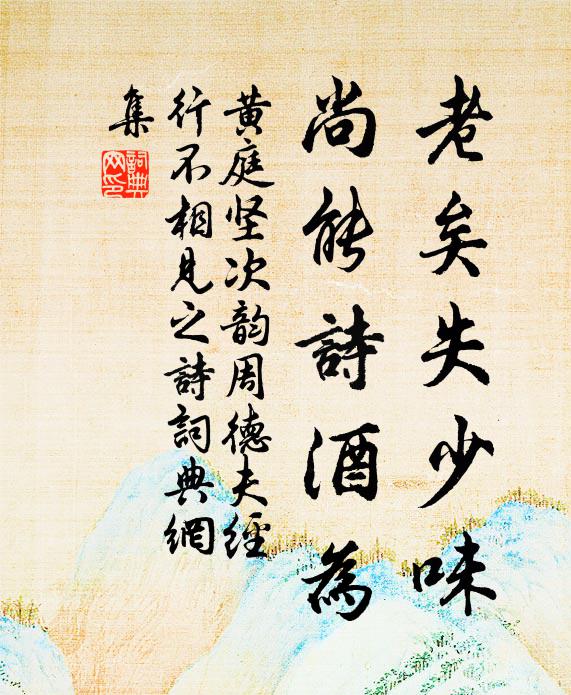 老矣失少味
尚能詩酒為
黄庭坚次韵周德夫經
行不相見之詩詞典網
集
詞典
网印